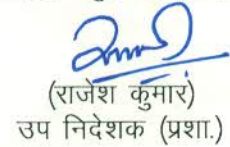 (राजेश कुमार)
उप निदेशक (प्रशा.)